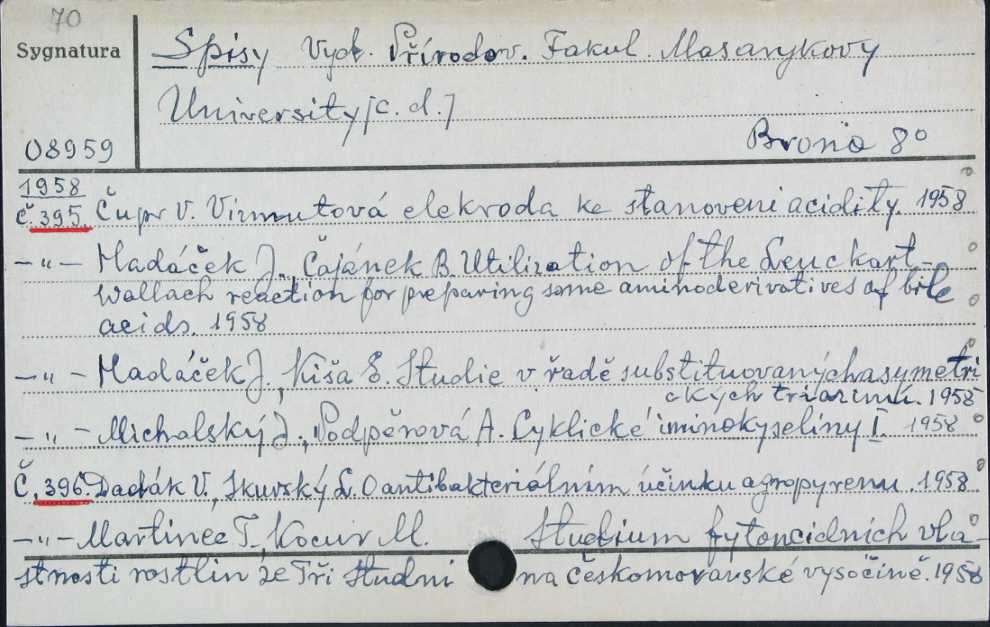 70
Sygnatura
Spisy Vyd. Přírodov. Fakul. Masarykovy
University [c.d.]
08959
Brno 8°
1958
Č.395. Čupr V. Vizmutová elekroda ke stanoveni acidity. 1958
-"- Hadáček J., Čajánek B. Utilization of the Leuckart-
Wallach reaction for preparing some aminoderivatives of bile
acids. 1958
-"- Hadáček J., Kiša E. Studie v řadě substituovaných asymetri
ckých triazinu. 1958
-"- Michalský J., Podpěrová A. Cyklické iminokyseliny I. 1958
Č.396. Dadák V., Skurský L. O antibakteriálním účinku agropyrenu. 1958
-"- Martinec T., Kocur M. Studium fytoncidních vla-
stnosti rostlin ze Tři Studni na Českomoravské vysočině. 1958